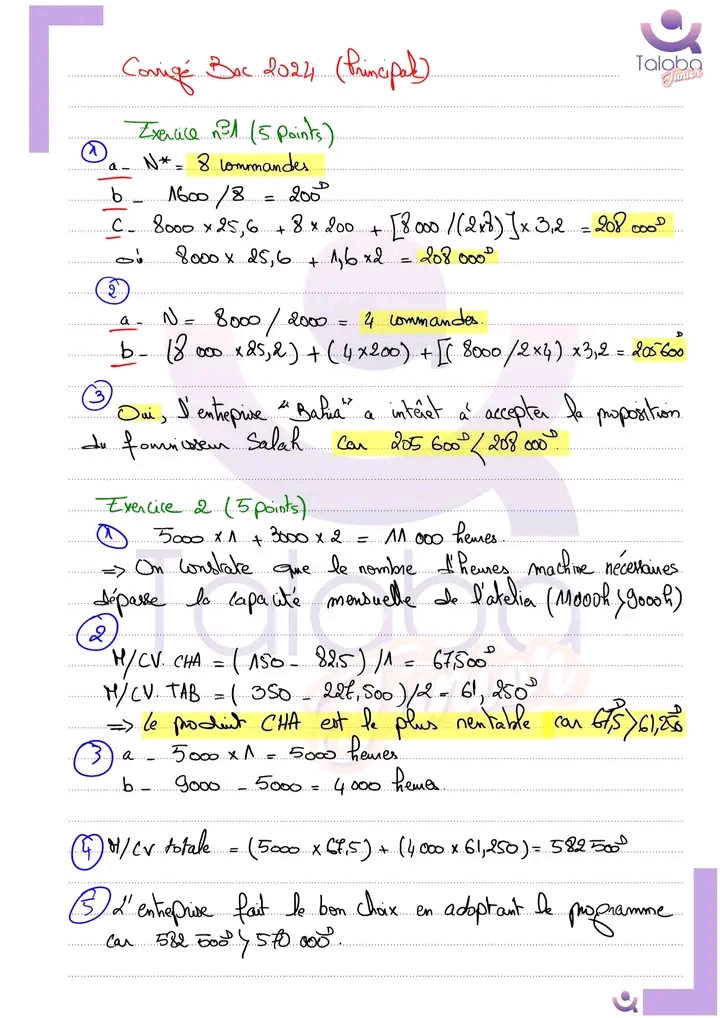 Talaba
Junior
Corrigé Bac 2024 (Principale)
Exercice n°1 (5 points)
① a- N* = 8 commandes
b- 1600 / 8 = 200ᴰ
C- 8000 × 25,6 + 8 × 200 + [8 000 / (2×8)] × 3,2 = 208 000ᴰ
où 8000 × 25,6 + 1,6 × 2 = 208 000ᴰ
②
a- N = 8000 / 2000 = 4 commandes.
b- (8 000 × 25,2) + (4 × 200) + [( 8000 / 2×4) × 3,2 = 205 600ᴰ
③
Oui, l'entreprise "Bahia" a intérêt à accepter la proposition
du fournisseur Salah car 205 600ᴰ < 208 000ᴰ.
Exercice 2 (5 points)
① 5000 × 1 + 3000 × 2 = 11 000 heures.
=> On constate que le nombre d'heures machine nécessaires
dépasse la capacité mensuelle de l'atelier (11000h > 9000h)
②
M/CV. CHA = ( 150 - 82,5 ) / 1 = 67,500ᴰ
M/CV. TAB = ( 350 - 227,500 ) / 2 = 61, 250ᴰ
=> Le produit CHA est le plus rentable car 67,5ᴰ > 61,250ᴰ
③ a - 5000 × 1 = 5000 heures
b - 9000 - 5000 = 4 000 heures.
④ M/CV totale = (5000 × 67,5) + (4 000 × 61,250) = 582 500ᴰ
⑤ L'entreprise fait le bon choix en adoptant le programme
car 582 500ᴰ > 570 000ᴰ.
Talaba
Junior